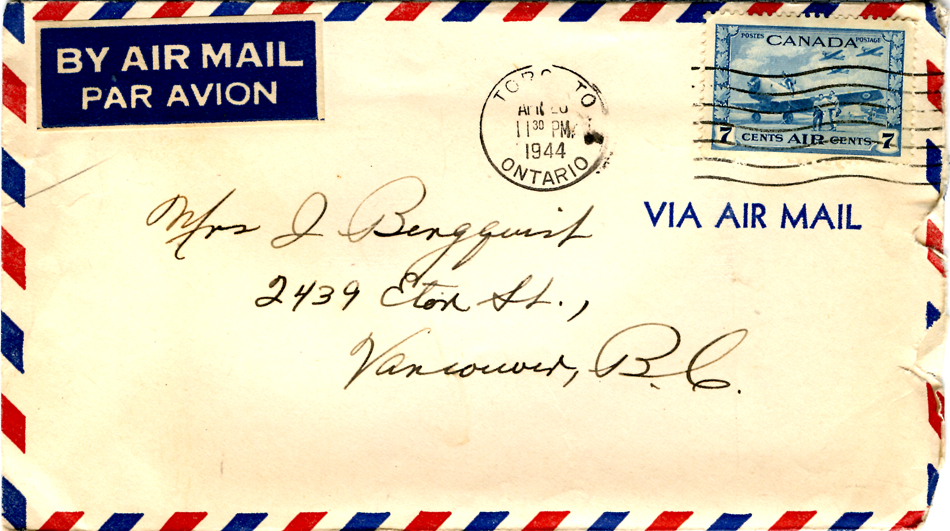 BY AIR MAIL
PAR AVION
TORONTO
11 30 PM
1944
ONTARIO
POSTES CANADA POSTAGE
7 CENTS AIR CENTS 7
VIA AIR MAIL
Mrs J Bergquist
2439 Eton St.,
Vancouver, B.C.